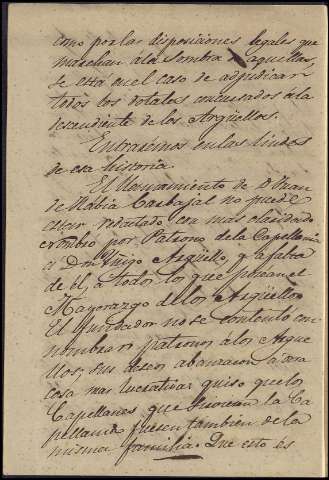 como por las disposiciones legales que
marchan á la sombra de aquellas,
se está en el caso de adjudicar
todos los dotales concursados á la
descendiente de los Argüellos.
Entraremos en las lindes
de esa historia.
El llamamiento de D. Juan
de Mabia Carbajal no puede
estar redactado con mas claridad
nombró por Patrono de la Capellania
a Don Iñigo Argüello, y á falta
de él, a todos los que posean el
Mayorazgo de los Argüellos
El fundador no se contentó con
nombrar patronos á los Argue
llos; sus deseos abarcaron otra
cosa mas lucrativa: quiso que los
Capellanes que sirvieran la Ca
pellania fuesen tambien de la
misma familia. Que esto es